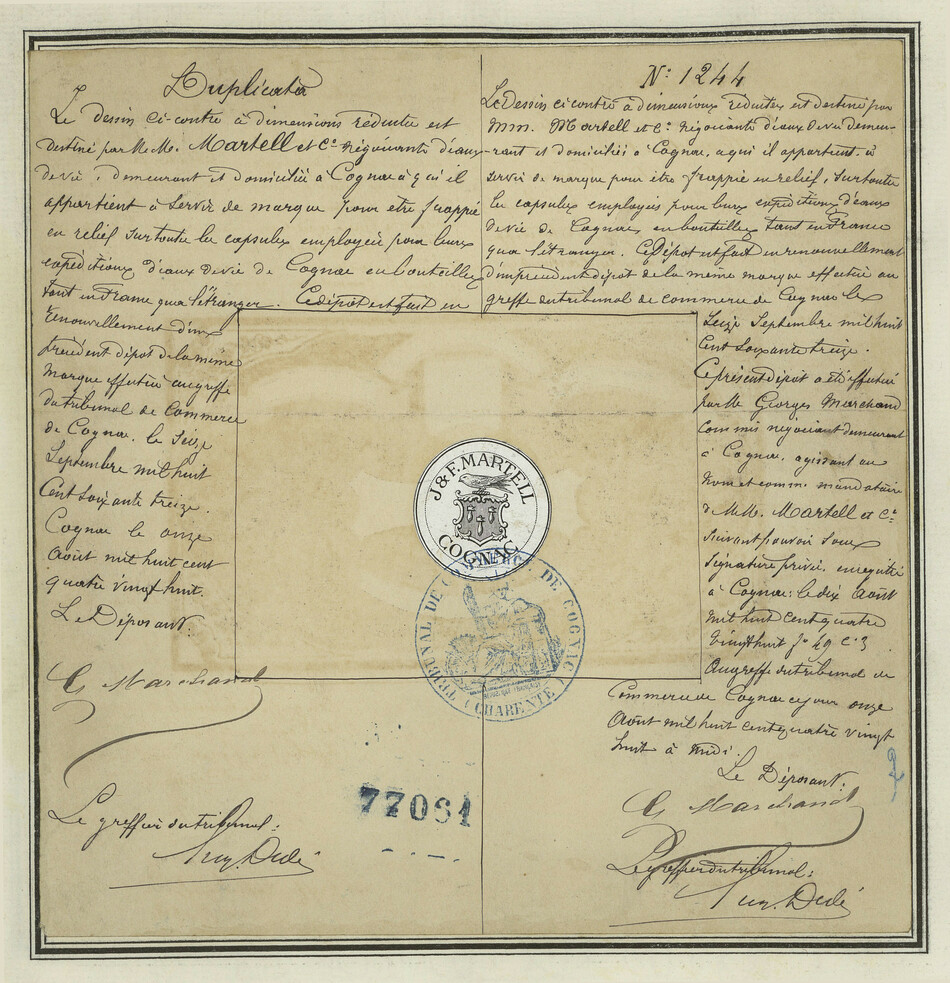 Duplicata
Le dessin ci contre à dimensions réduites est
destiné par M.M. Martell et Cie négociants d'eaux
de vie, demeurant et domiciliés à Cognac à qui il
appartient à servir de marque pour être frappé
en relief sur toutes les capsules employées pour leurs
expéditions d'eaux de vie de Cognac en bouteilles
tant en France qu'à l'étranger. Ce dépôt est fait en
renouvellement d'un
précédent dépôt de la même
marque effectué au greffe
du tribunal de Commerce
de Cognac, le Seize
Septembre mil huit
Cent soixante treize.
Cognac le onze
Août mil huit cent
quatre vingt huit.
Le Déposant:
G Marchand
Le greffier du tribunal:
N: 1244
Le Dessin ci contre à dimensions réduites est destiné par
MM. Martell et Cie négociants d'eaux de vie demeu-
rant et domiciliés à Cognac, à qui il appartient à
servir de marque pour être frappée en relief, sur toutes
les capsules employées pour leurs expéditions d'eaux
de vie de Cognac en bouteilles tant en France
qu'à l'étranger. Ce Dépôt est fait en renouvellement
d'un précédent dépôt de la même marque effectué au
greffe du tribunal de commerce de Cognac le
Seize Septembre mil huit
Cent soixante treize.
Ce présent dépôt a été effectué
par M Georges Marchand
Commis négociant demeurant
à Cognac, agissant au
nom et comme mandataire
de MM. Martell et Cie
suivant pouvoir sous
signature privée, enregistré
à Cognac: le dix Août
mil huit cent quatre
vingt huit fo 49 C 3
Au greffe du tribunal de
Commerce de Cognac ce jour onze
Août mil huit cent quatre vingt
huit à midi.
Le Déposant:
G Marchand
Le greffier du tribunal:
J&F. MARTELL
COGNAC
TRIBUNAL DE COMMERCE DE COGNAC
(CHARENTE)
77061